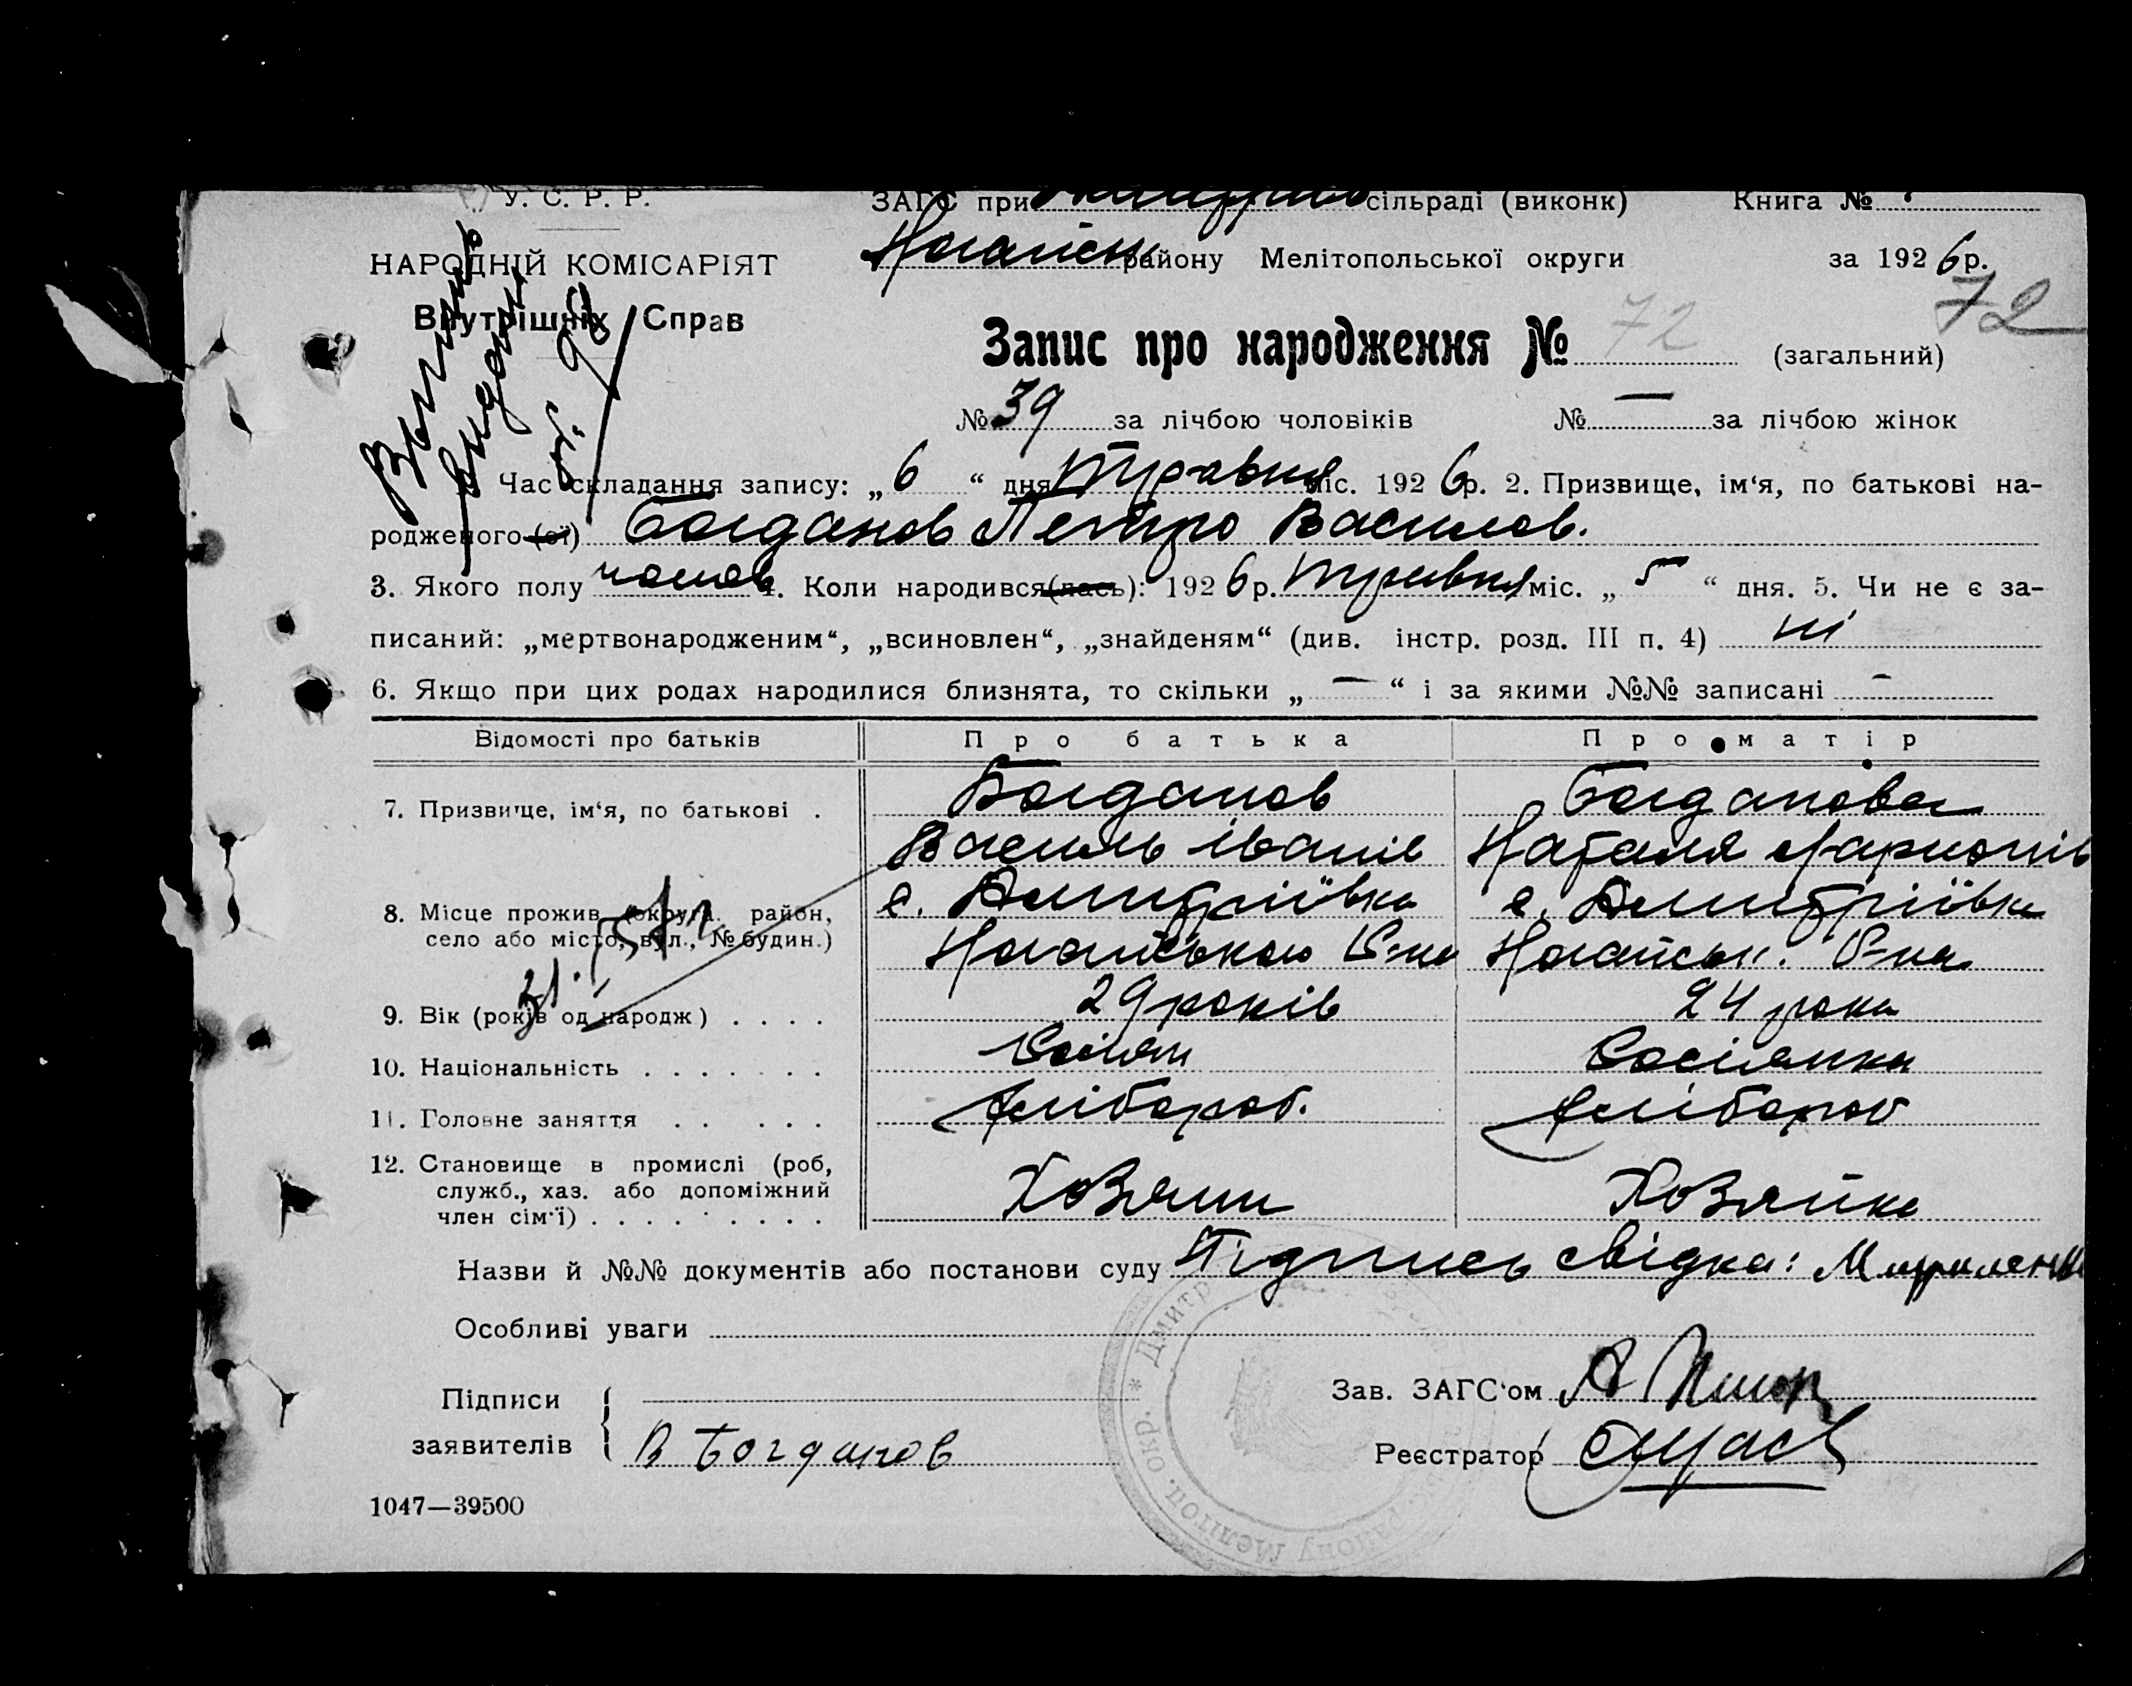 У. С. Р. Р.
ЗАГС при сільраді (виконк) Книга №
НАРОДНІЙ КОМІСАРІЯТ
Внутрішніх Справ
Ногайськ району Мелітопольської округи за 1926 р.
72
Запис про народження № 72 (загальний)
№ 39 за лічбою чоловіків № — за лічбою жінок
Час складання запису: „6“ дня травня міс. 1926 р. 2. Призвище, ім‘я, по батькові на-
родженого (ої) Богданов Петро Васильов.
3. Якого полу чолов 4. Коли народився (лась): 1926 р. травня міс. „5“ дня. 5. Чи не є за-
писаний: „мертвонародженим“, „всиновлен“, „знайденям“ (див. інстр. розд. III п. 4) ні
6. Якщо при цих родах народилися близнята, то скільки „—“ і за якими №№ записані -
Відомості про батьків Про батька Про матір
7. Призвище, ім‘я, по батькові . Богданов Богданова
Василь Іванів Наталя Ларионів
8. Місце прожив. (округа, район, с. Дмитріївка с. Дмитріївка
село або місто, вул., № будин.) Ногайського Р-на Ногайськ. Р-на
31. 57 г.
9. Вік (років од народж) . . . . 29 років 24 роки
10. Національність . . . . . . . Росіян Росіянка
11. Головне заняття . . . . . Хлібороб. Хлібороб
12. Становище в промислі (роб,
служб., хаз. або допоміжний
член сім‘ї) . . . . . . . . . Хозяин Хозяйка
Назви й №№ документів або постанови суду Підпись свідка:
Особливі уваги
Підписи
заявителів В Богданов
Зав. ЗАГС‘ом
Реєстратор
* Дмитр району Меліпоп. окр. *
1047—39500